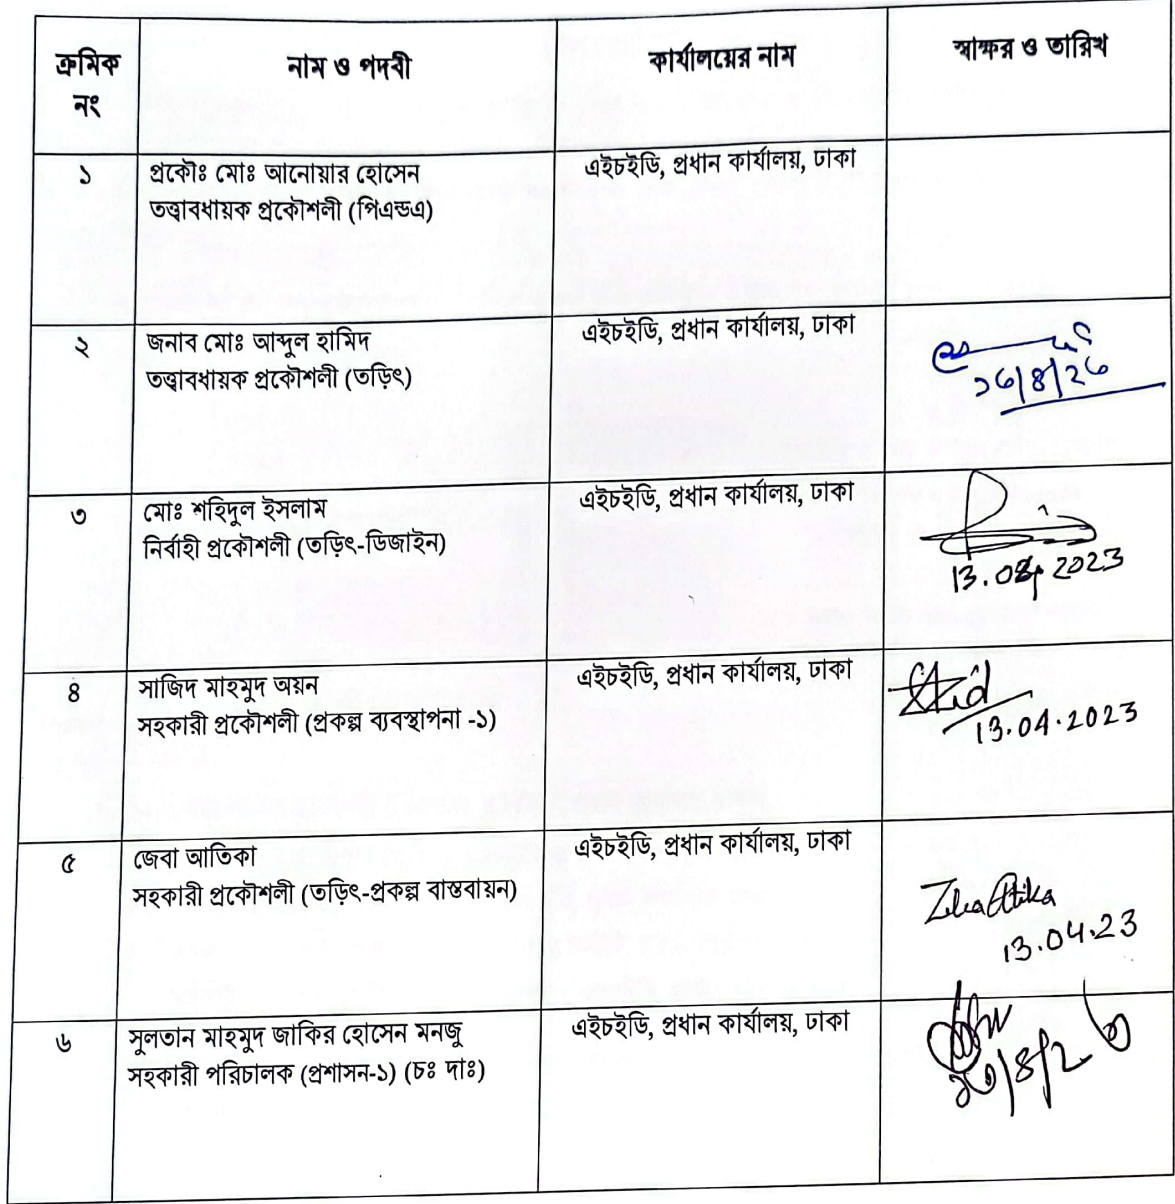 ক্রমিক নং
নাম ও পদবী
কার্যালয়ের নাম
স্বাক্ষর ও তারিখ
১
প্রকৌঃ মোঃ আনোয়ার হোসেন
তত্ত্বাবধায়ক প্রকৌশলী (পিএন্ডএ)
এইচইডি, প্রধান কার্যালয়, ঢাকা
২
জনাব মোঃ আব্দুল হামিদ
তত্ত্বাবধায়ক প্রকৌশলী (তড়িৎ)
এইচইডি, প্রধান কার্যালয়, ঢাকা
১৩/৪/২৩
৩
মোঃ শহিদুল ইসলাম
নির্বাহী প্রকৌশলী (তড়িৎ-ডিজাইন)
এইচইডি, প্রধান কার্যালয়, ঢাকা
13.04.2023
৪
সাজিদ মাহমুদ অয়ন
সহকারী প্রকৌশলী (প্রকল্প ব্যবস্থাপনা -১)
এইচইডি, প্রধান কার্যালয়, ঢাকা
13.04.2023
৫
জেবা আতিকা
সহকারী প্রকৌশলী (তড়িৎ-প্রকল্প বাস্তবায়ন)
এইচইডি, প্রধান কার্যালয়, ঢাকা
13.04.23
৬
সুলতান মাহমুদ জাকির হোসেন মনজু
সহকারী পরিচালক (প্রশাসন-১) (চঃ দাঃ)
এইচইডি, প্রধান কার্যালয়, ঢাকা
১৩/৪/২৩